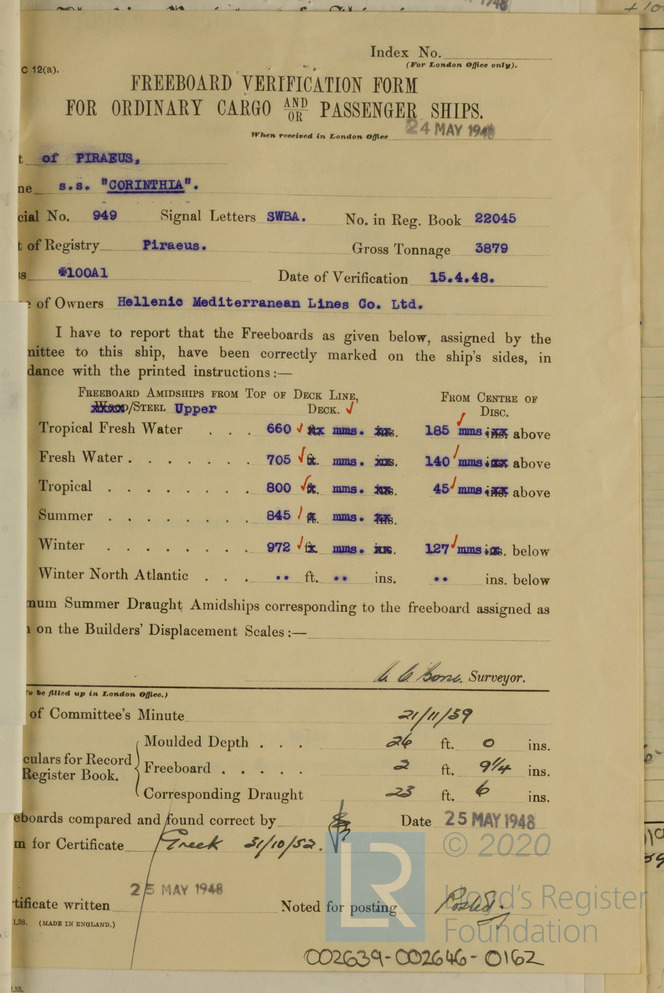 Index No.
(For London Office only).
C 12(a).
FREEBOARD VERIFICATION FORM
FOR ORDINARY CARGO AND/OR PASSENGER SHIPS.
When received in London Office 24 MAY 194
t of PIRAEUS,
ne s.s. "CORINTHIA".
cial No. 949 Signal Letters SWBA. No. in Reg. Book 22045
t of Registry Piraeus. Gross Tonnage 3879
s *100A1 Date of Verification 15.4.48.
e of Owners Hellenic Mediterranean Lines Co. Ltd.
I have to report that the Freeboards as given below, assigned by the
mittee to this ship, have been correctly marked on the ship's sides, in
dance with the printed instructions:—
FREEBOARD AMIDSHIPS FROM TOP OF DECK LINE, FROM CENTRE OF
/STEEL Upper DECK. DISC.
Tropical Fresh Water . . . 660 mms. 185 mms above
Fresh Water . . . . . . . 705 mms. 140 mms above
Tropical . . . . . . . . 800 mms. 45 mms above
Summer . . . . . . . . 845 mms.
Winter . . . . . . . . 972 mms. 127 mms below
Winter North Atlantic . . . .. ft. .. ins. .. ins. below
num Summer Draught Amidships corresponding to the freeboard assigned as
on the Builders' Displacement Scales:—
Surveyor.
To be filled up in London Office.)
of Committee's Minute 21/11/39
Moulded Depth . . . 26 ft. 0 ins.
culars for Record
Register Book.
Freeboard . . . . . 2 ft. 9¼ ins.
Corresponding Draught 23 ft. 6 ins.
eboards compared and found correct by Date 25 MAY 1948
m for Certificate Greek 31/10/52.
© 2020
25 MAY 1948
tificate written Noted for posting Posted.
LR
Lloyd's Register
Foundation
1.38. (MADE IN ENGLAND.)
002639-002646-0162